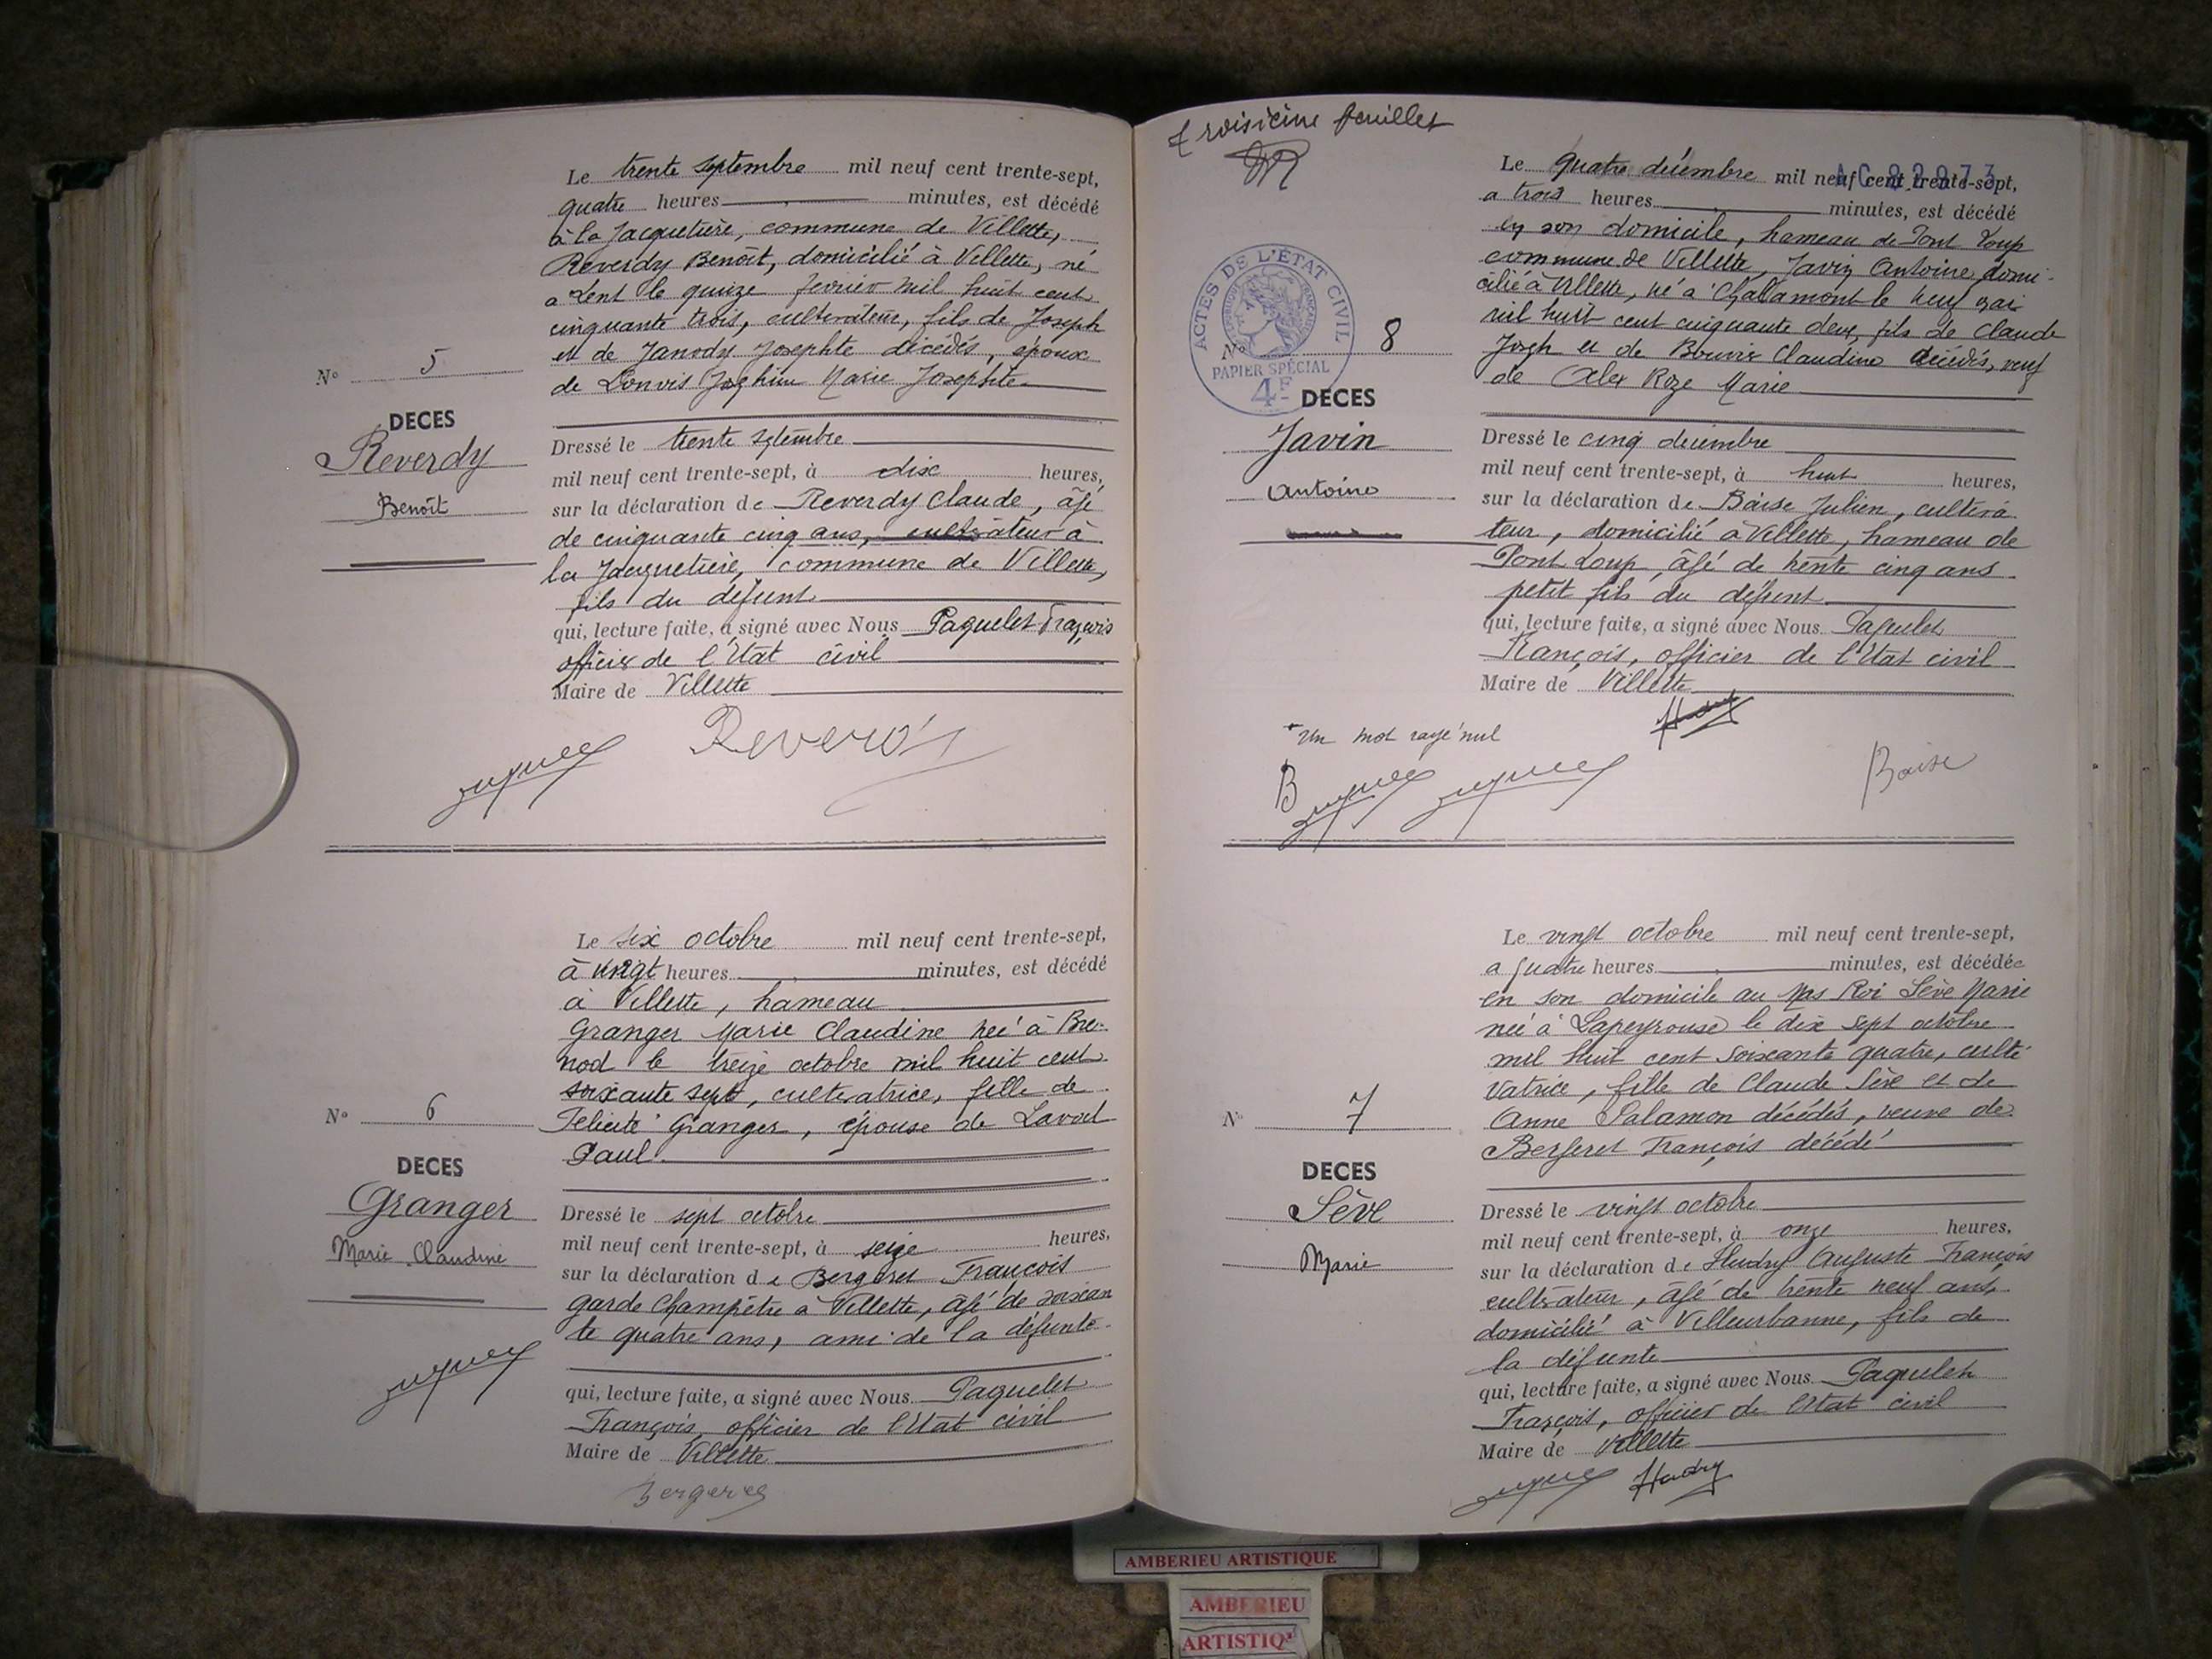 Le trente septembre mil neuf cent trente-sept,
quatre heures minutes, est décédé
à la Jacquetière, commune de Villette,
Reverdy Benoît, domicilié à Villette, né
a Dent le quinze fevrier mil huit cent
cinquante trois, cultivateur, fils de Joseph
et de Janody Josephte décédés, époux
de Marie Josephte
N° 5
DECES
Reverdy
Benoît
Dressé le trente septembre
mil neuf cent trente-sept, à dix heures,
sur la déclaration de Reverdy Claude, âgé
de cinquante cinq ans, cultivateur à
la Jacquetière, commune de Villette,
fils du défunt
qui, lecture faite, a signé avec Nous Paquelet François
officier de l'Etat civil
Maire de Villette
Le six octobre mil neuf cent trente-sept,
à vingt heures minutes, est décédé
à Villette, hameau
Granger Marie Claudine née à Bre-
nod le treize octobre mil huit cent
soixante sept, cultivatrice, fille de
Felicité Granger, épouse de
Paul
N° 6
DECES
Granger
Marie Claudine
Dressé le sept octobre
mil neuf cent trente-sept, à seize heures,
sur la déclaration de Bergeret François
garde Champêtre à Villette, âgé de soixan
te quatre ans, ami de la défunte
qui, lecture faite, a signé avec Nous Paquelet
François, officier de l'Etat civil
Maire de Villette
Bergeret
troisième feuillet
AC 82973
Le quatre décembre mil neuf cent trente-sept,
a trois heures minutes, est décédé
en son domicile, hameau de Pont Loup
commune de Villette, Javin Antoine, domi-
cilié à Villette, né a Chalamont le neuf mai
mil huit cent cinquante deux, fils de Claude
et de Bouvier Claudine décédés, veuf
de Roze Marie
ACTES DE L'ÉTAT CIVIL
PAPIER SPÉCIAL
4F
N° 8
DECES
Javin
Antoine
Dressé le cinq décembre
mil neuf cent trente-sept, à huit heures,
sur la déclaration de Baise Julien, cultiva
teur, domicilié à Villette, hameau de
Pont Loup, âgé de trente cinq ans
petit fils du défunt
qui, lecture faite, a signé avec Nous Paquelet
François, officier de l'Etat civil
Maire de Villette
Un mot rayé nul
B
Baise
Le vingt octobre mil neuf cent trente-sept,
a quatre heures minutes, est décédée
en son domicile au Mas Roi Sève Marie
née à Lapeyrouse le dix sept octobre
mil huit cent soixante quatre, culti
vatrice, fille de Claude Sève et de
Anne Salamon décédés, veuve de
Bergeret François décédé
N° 7
DECES
Sève
Marie
Dressé le vingt octobre
mil neuf cent trente-sept, à onze heures,
sur la déclaration de Hudry Auguste François
cultivateur, âgé de trente neuf ans,
domicilié à Villeurbanne, fils de
la défunte
qui, lecture faite, a signé avec Nous Paquelet
François, officier de l'Etat civil
Maire de Villette
Hudry
AMBERIEU ARTISTIQUE
AMBERIEU
ARTISTIQ